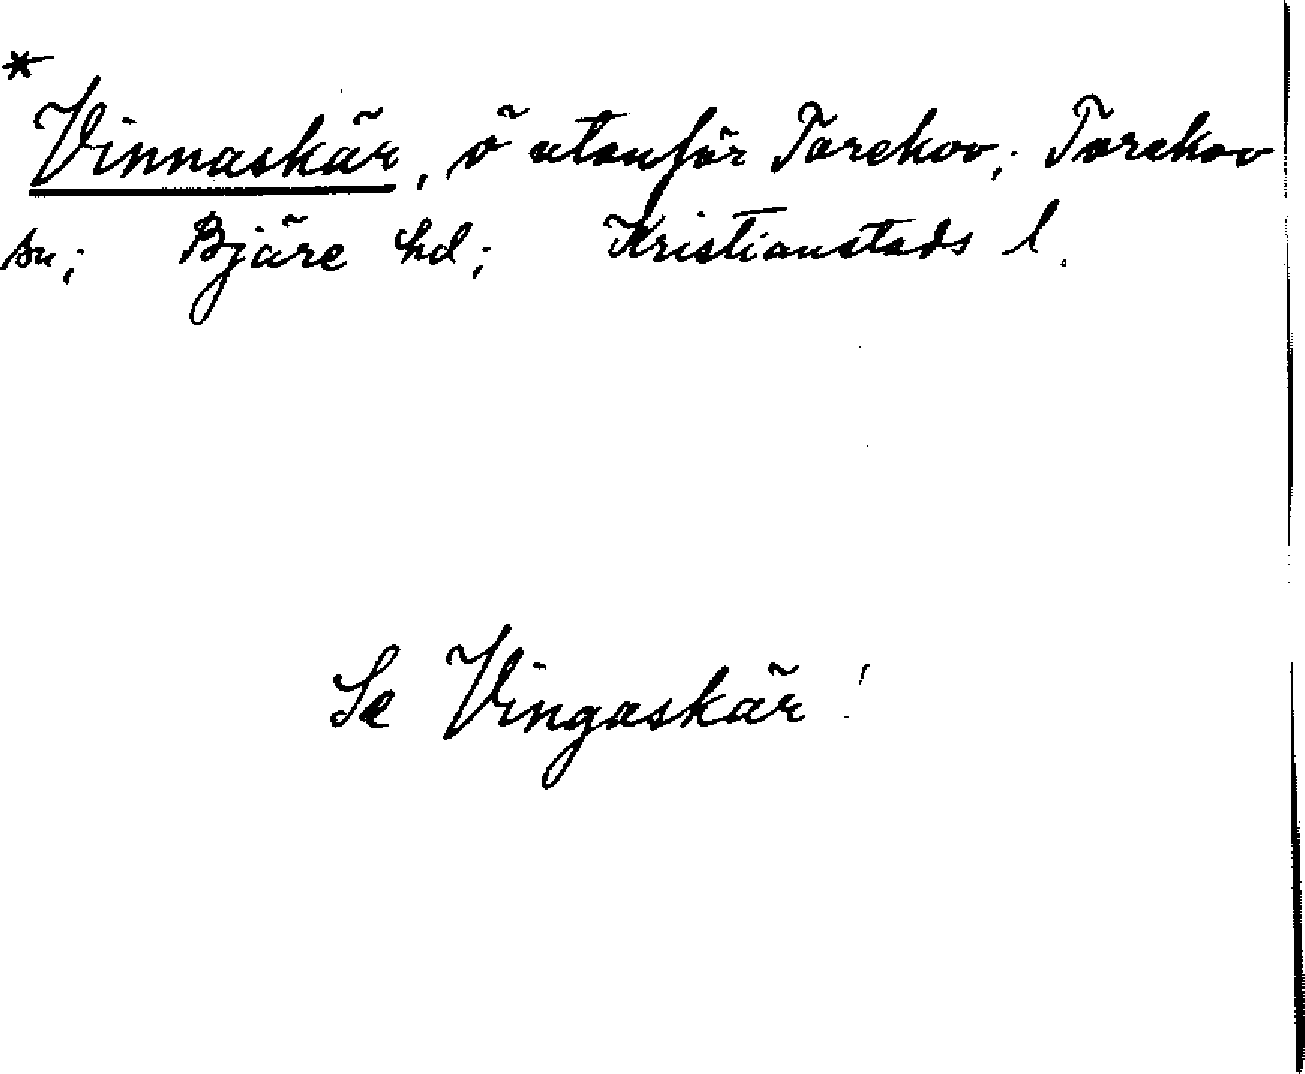 *
Vinnaskär, ö utanför Torekov; Torekov
sn; Bjäre hd; Kristianstads l.
Se Vingaskär!